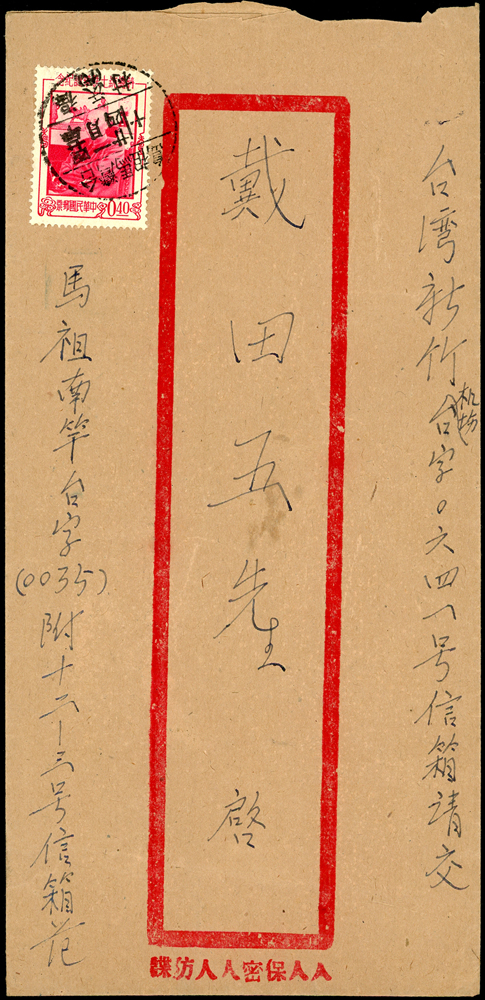 台湾新竹台字〇六四一号信箱請交
机场
戴田五先生 啓
馬祖南竿台字(0035)附十二-三号信箱范
人人保密人人防諜
中華民國郵票
0.40